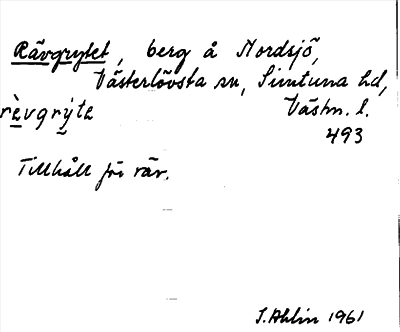 Rävgrytet, berg å Nordsjö,
Västerlövsta sn, Simtuna hd,
rèvgrýte Västm. l.
493
Tillhåll för räv.
I. Ahlin 1961